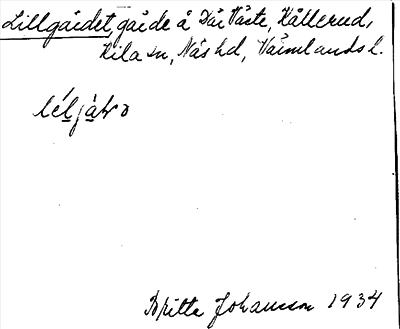 Lillgärdet, gärde å Där Väste, Kållerud,
Kila sn, Näs hd, Värmlands l.
lél jäḷ ɷ
Britta Johansson 1934